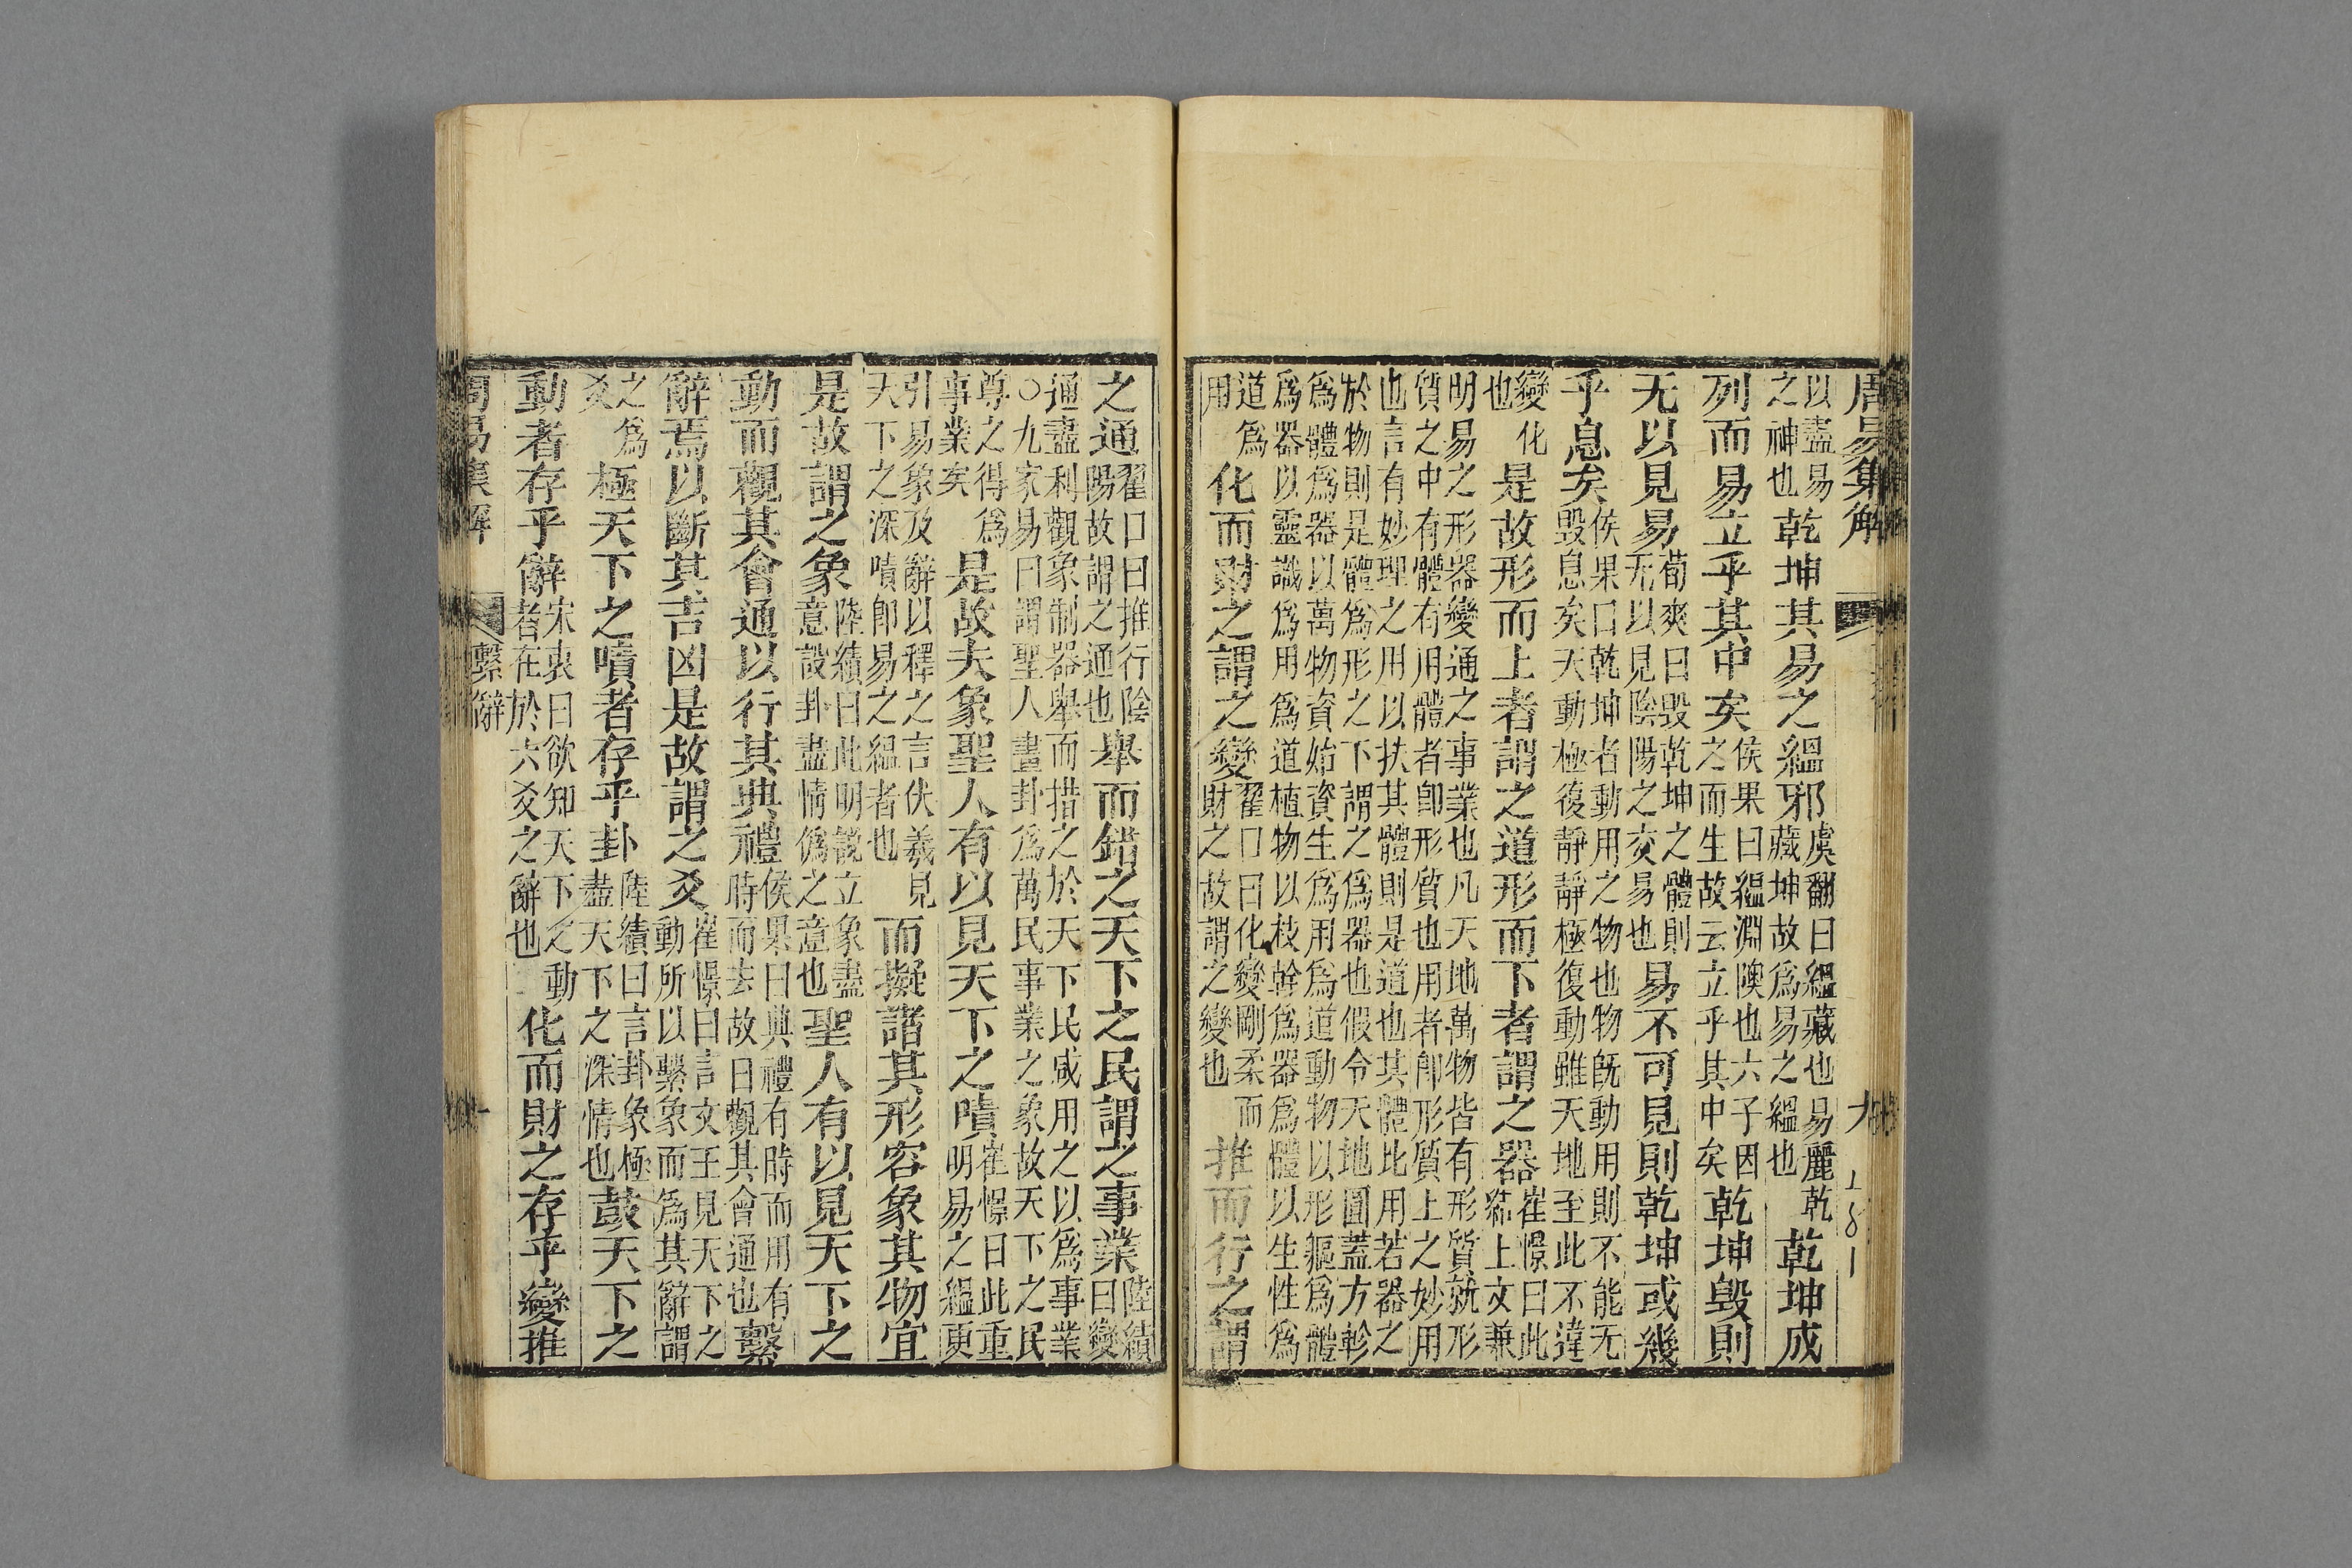 周易集解 九
以盡易之神也乾坤其易之縕邪虞翻曰縕藏也易麗乾藏坤故爲易之縕也乾坤成
列而易立乎其中矣侯果曰縕淵隩也六子因之而生故云立乎其中矣乾坤毀則
无以見易荀爽曰毀乾坤之體則无以見陰陽之交易也易不可見則乾坤或幾
乎息矣侯果曰乾坤者動用之物也物旣動用則不能无毀息矣天動極復靜靜極復動雖天地至此不違
變化也是故形而上者謂之道形而下者謂之器崔憬曰此結上文兼
明易之形器變通之事業也凡天地萬物皆有形質就形質之中有體有用體者卽形質也用者卽形質上之妙用
也言有妙理之用以扶其體則是道也其體比用若器之於物則是體爲形之下謂之爲器也假令天地圓蓋方軫
爲體爲器以萬物資始資生爲用爲道動物以形軀爲體爲器以靈識爲用爲道植物以枝幹爲器爲體以生性爲
道爲用化而財之謂之變翟口曰化變剛柔而財之故謂之變也推而行之謂
之通翟口曰推行陰陽故謂之通也舉而錯之天下之民謂之事業陸績曰變
通盡利觀象制器舉而措之於天下民咸用之以爲事業○九家易曰謂聖人畫卦爲萬民事業之象故天下之民
尊之得爲事業矣是故夫象聖人有以見天下之嘖崔憬曰此重明易之縕更
引易象及辭以釋之言伏羲見天下之深嘖卽易之縕者也而擬諸其形容象其物宜
是故謂之象陸績曰此明說立象盡意設卦盡情僞之意也聖人有以見天下之
動而觀其會通以行其典禮侯果曰典禮有時而用有時而去故曰觀其會通也繫
辭焉以斷其吉凶是故謂之爻崔憬曰言文王見天下之動所以繫象而爲其辭謂
之爲爻極天下之嘖者存乎卦陸績曰言卦象極盡天下之深情也鼓天下之
動者存乎辭宋衷曰欲知天下之動者在於六爻之辭也化而財之存乎變推
周易集解 繫辭